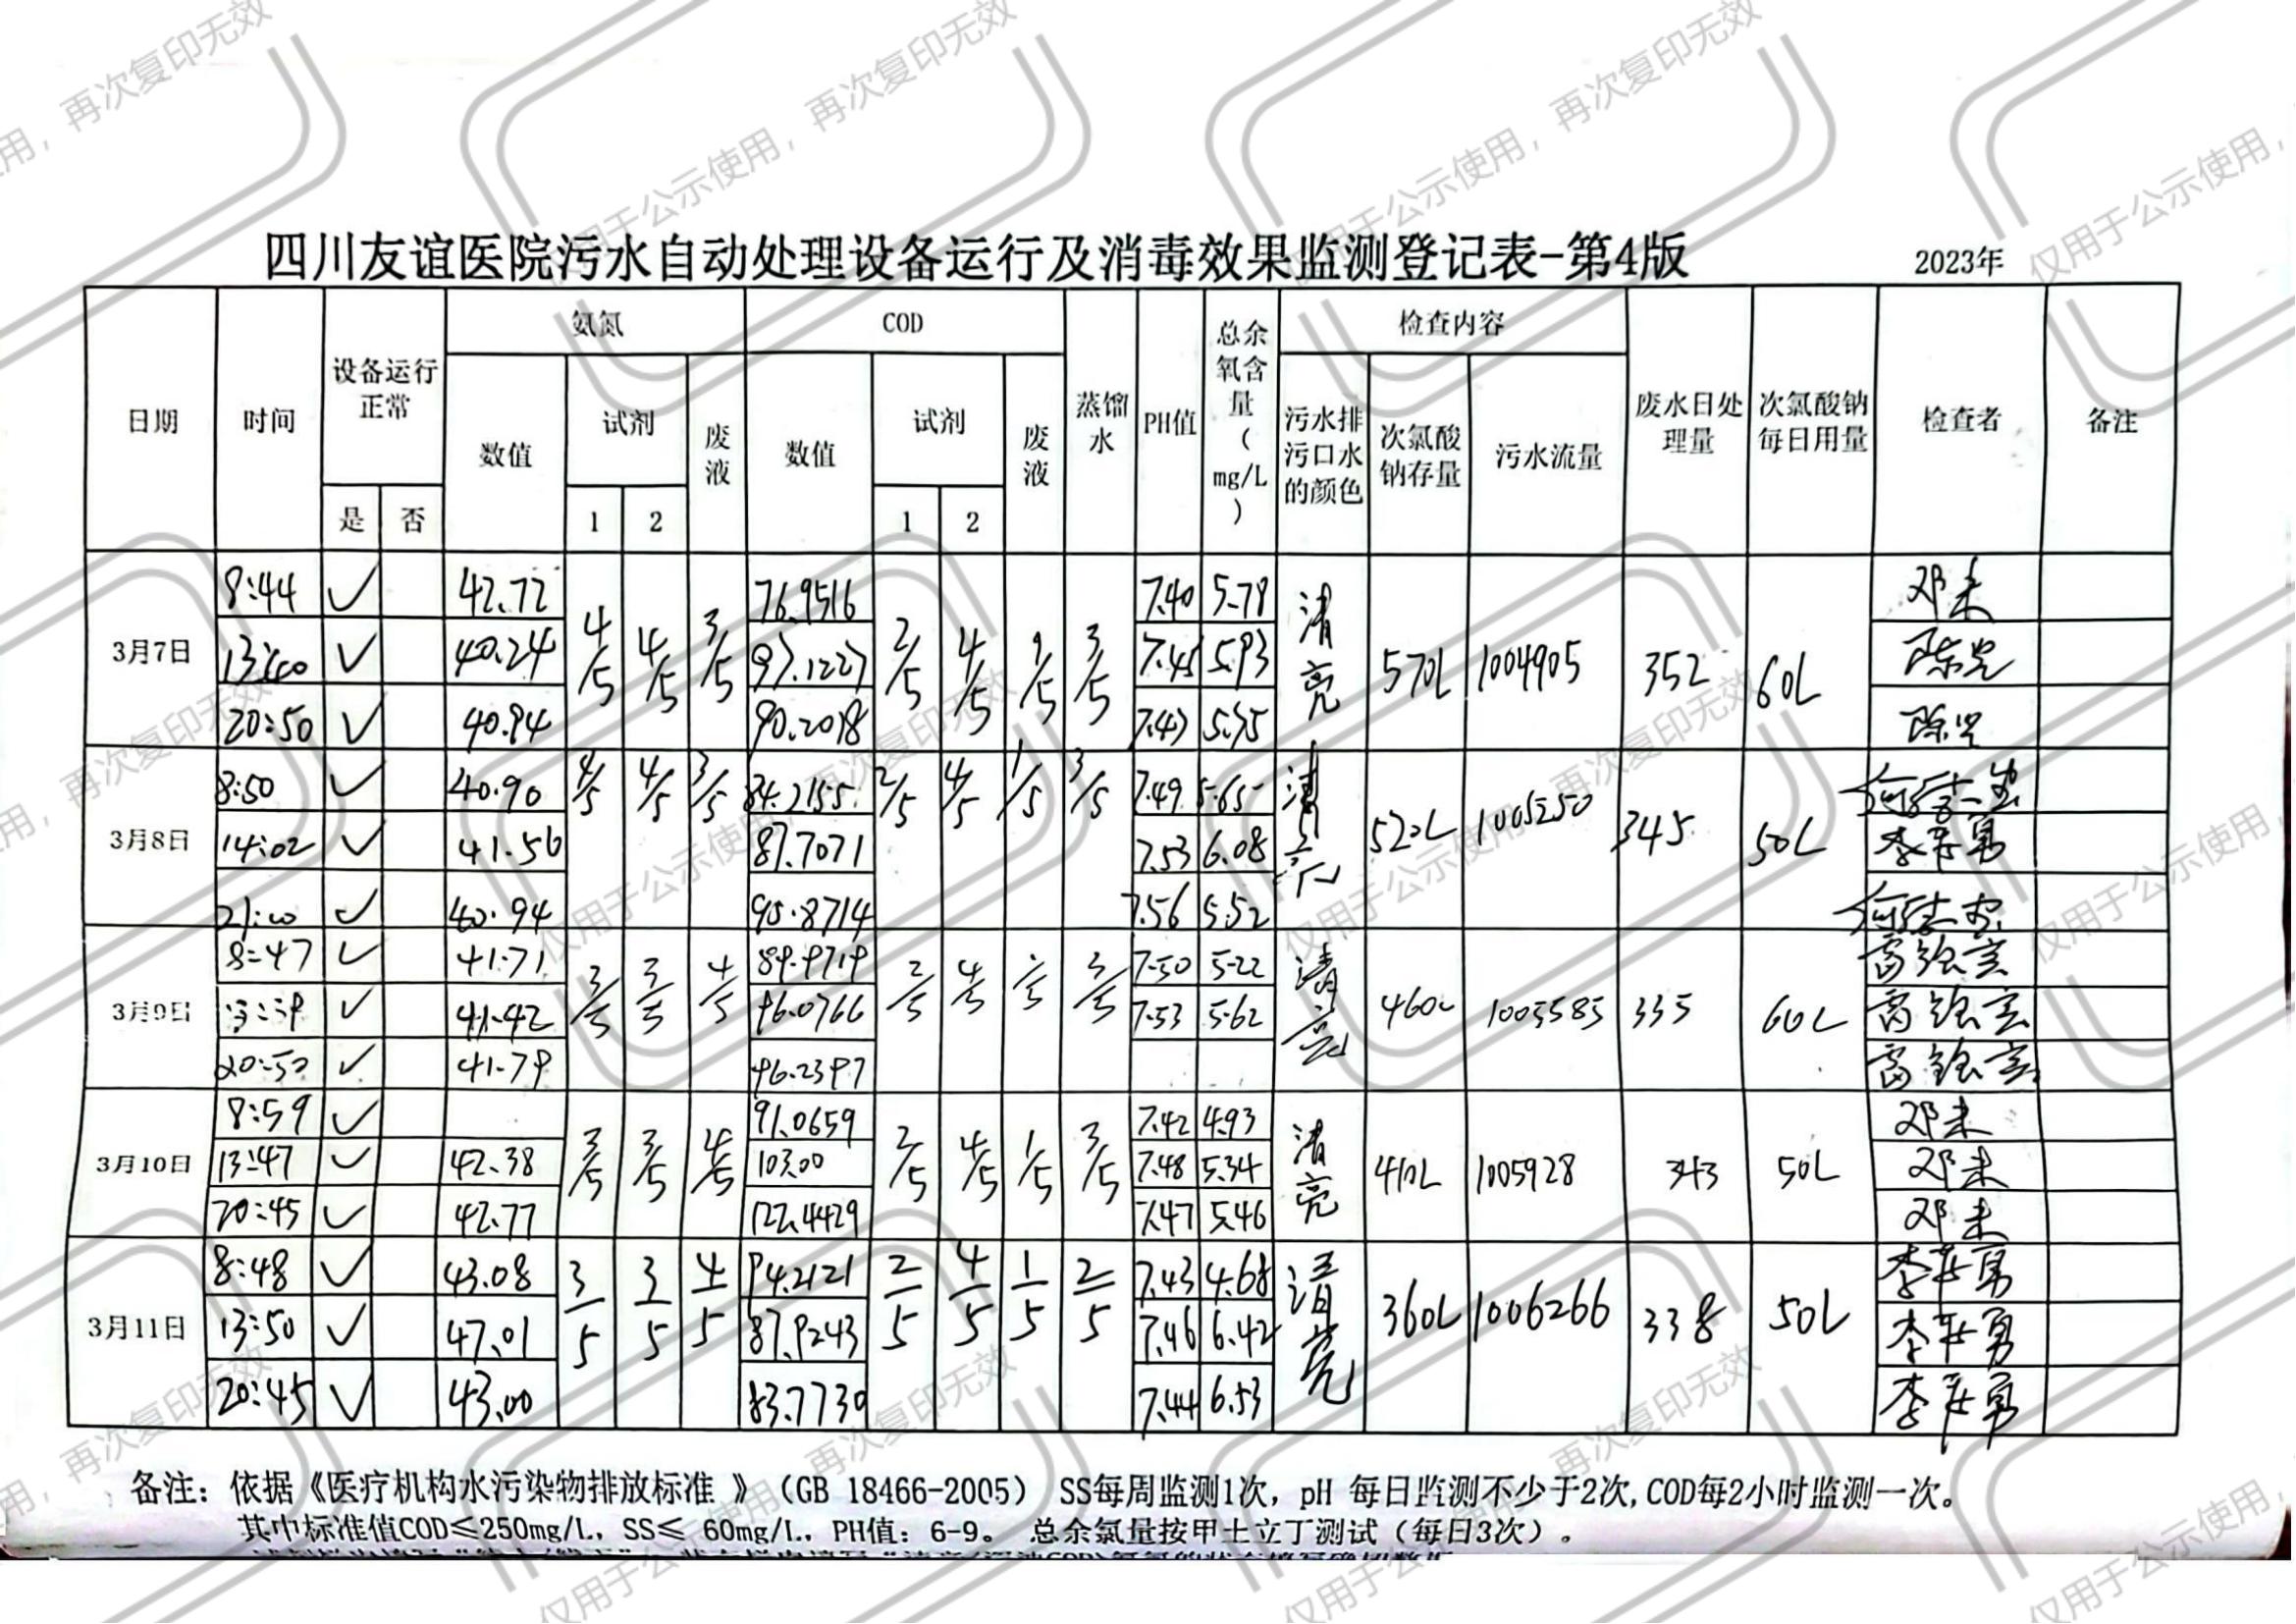 四川友谊医院污水自动处理设备运行及消毒效果监测登记表-第4版 2023年
日期 时间 设备运行正常 是 否 氨氮 数值 试剂 1 2 废液 COD 数值 试剂 1 2 废液 蒸馏水 PH值 总余氧含量(mg/L) 检查内容 污水排污口水的颜色 次氯酸钠存量 污水流量 废水日处理量 次氯酸钠每日用量 检查者 备注
3月7日 4/5 4/5 3/5 2/5 4/5 1/5 3/5 清亮 570L 1004905 352 60L
8:44 ✓ 42.72 76.9516 7.40 5.78 邓未
13:40 ✓ 40.24 7.45 5.93
20:50 ✓ 40.94 90.2098 7.47
3月8日 4/5 4/5 3/5 2/5 4/5 1/5 3/5 清亮 520L 1005250 345 50L
8:50 ✓ 40.90 84.2155 7.49 5.65
14:02 ✓ 41.56 87.7071 7.53 6.08
21:00 ✓ 40.94 90.8714 7.56 5.52
3月9日 3/5 3/5 4/5 2/5 4/5 3/5 清亮 460L 1005585 335 60L
8:47 ✓ 41.71 7.50 5.22
✓ 41.42 96.0766 7.53 5.62
20:50 ✓ 41.79 96.2397
3月10日 3/5 3/5 4/5 2/5 4/5 1/5 3/5 清亮 410L 1005928 343 50L
8:59 ✓ 91.0659 7.42 4.93 邓未
13:47 ✓ 42.38 103.00 7.48 5.34 邓未
20:45 ✓ 42.77 122.4429 7.47 5.46 邓未
3月11日 3/5 3/5 4/5 2/5 4/5 1/5 2/5 清亮 360L 1006266 338 50L
8:48 ✓ 43.08 94.2121 7.43 4.68
13:50 ✓ 47.01 87.9243 7.46 6.42
20:45 ✓ 43.00 83.7730 7.44 6.53
备注：依据《医疗机构水污染物排放标准 》（GB 18466-2005） SS每周监测1次，pH 每日监测不少于2次,COD每2小时监测一次。
其中标准值COD≤250mg/L，SS≤ 60mg/L，PH值：6-9。 总余氯量按甲土立丁测试（每日3次）。
仅用于公示使用，再次复印无效